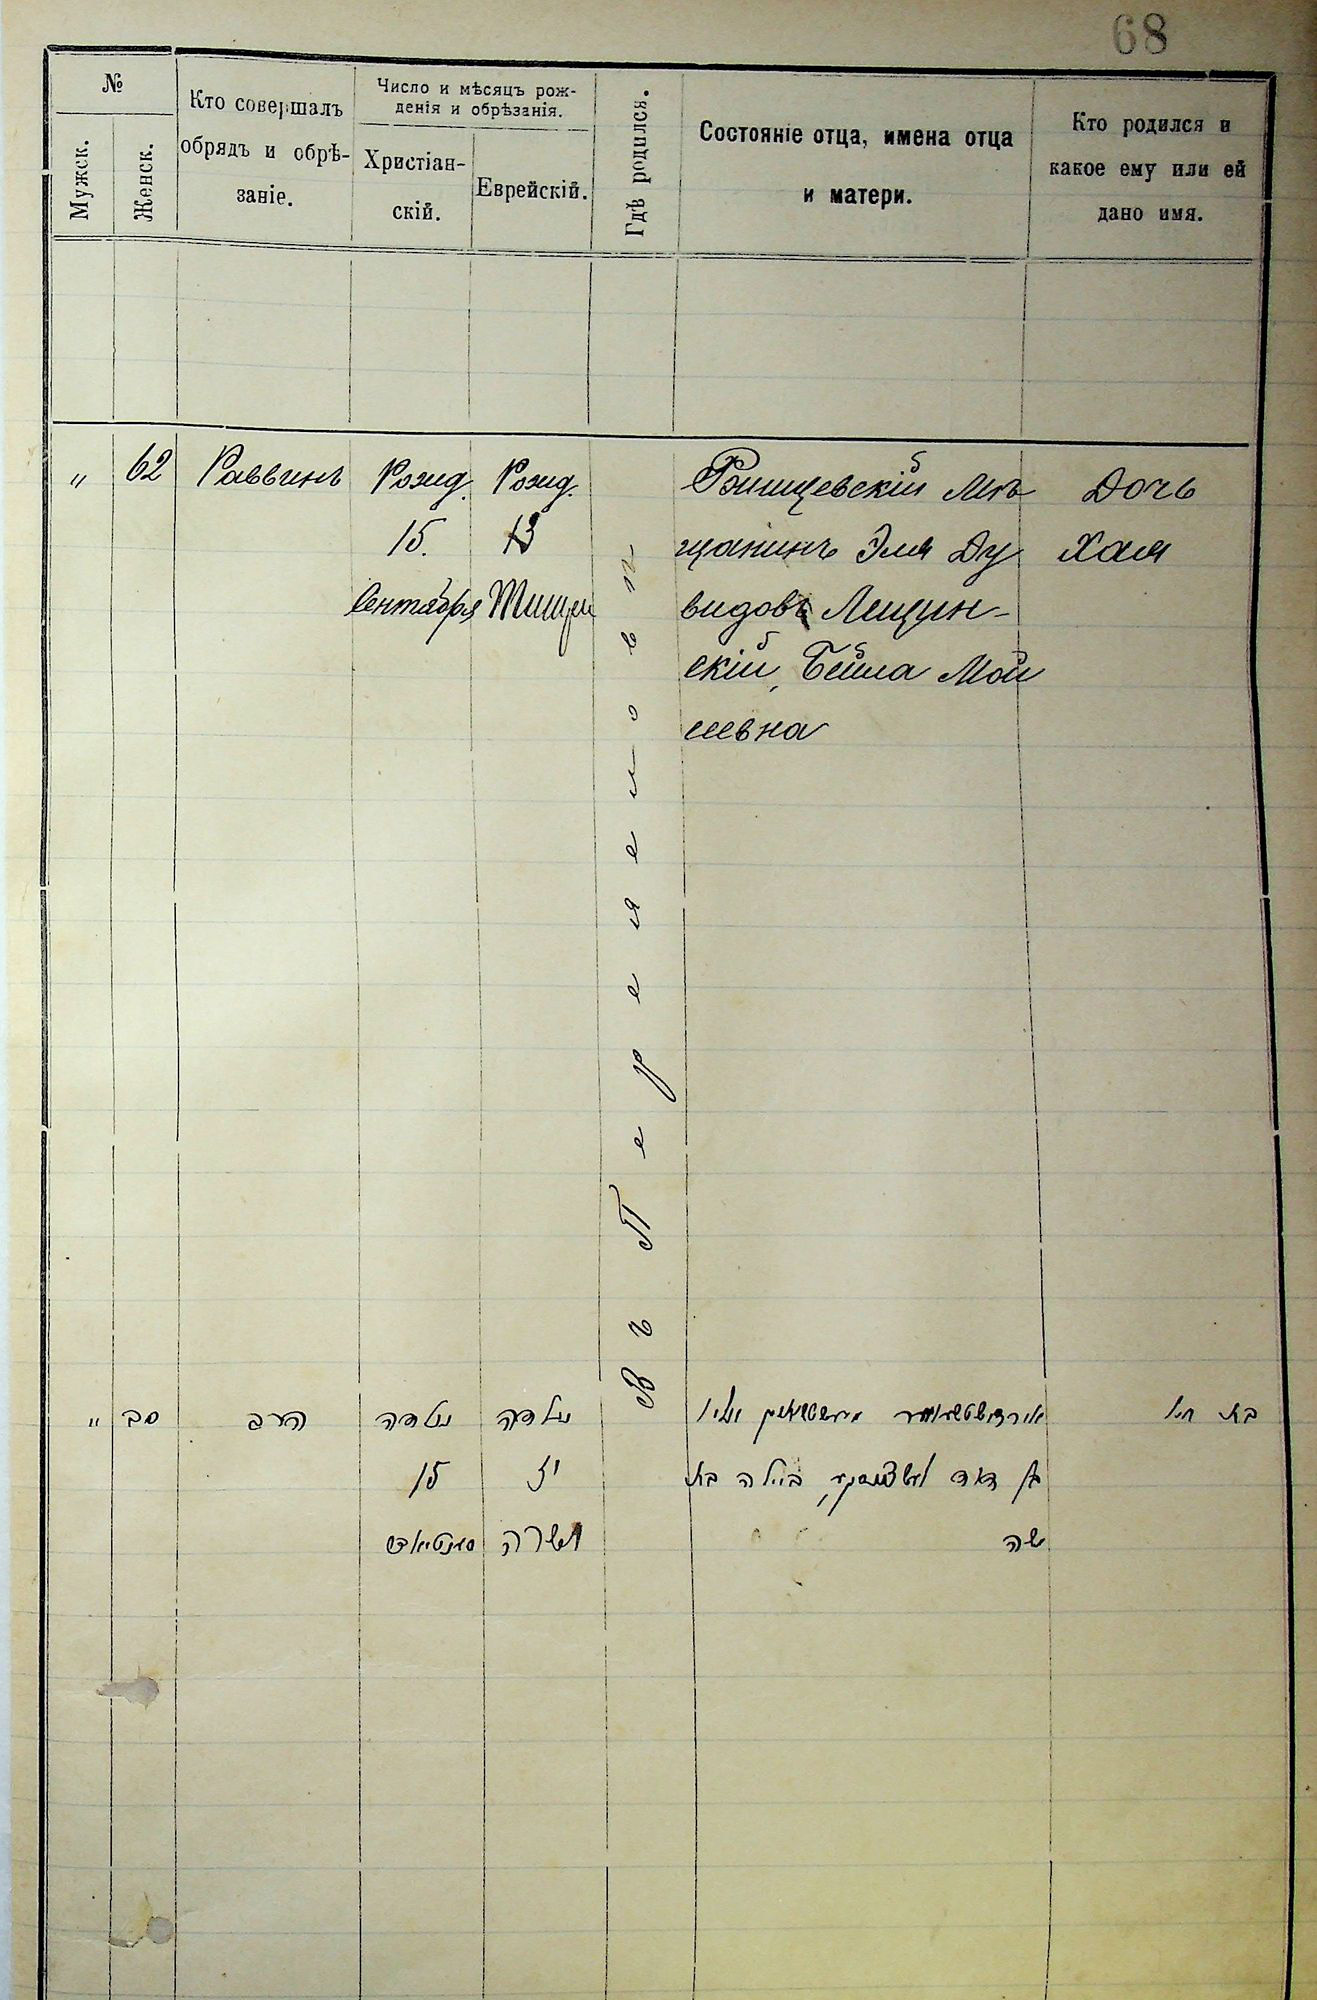 68
№
Мужск.
Женск.
Кто совершалъ
обрядъ и обрѣ-
заніе.
Число и мѣсяцъ рож-
денія и обрѣзанія.
Христіан-
скій.
Еврейскій.
Гдѣ родился.
Состояніе отца, имена отца
и матери.
Кто родился и
какое ему или ей
дано имя.
„ 62 Раввинъ
Рожд.
15.
Сентября
Рожд.
13
Тишри
Ржищевскій мѣ
щанинъ Эля Ду
видовъ Лещин-
скій, Бейла Мой
шевна
Дочь
Хая
„ סב
הרב
נולדה
15
נולדה
תשרי
בן דוד ביילה בת
משה
בת חיא